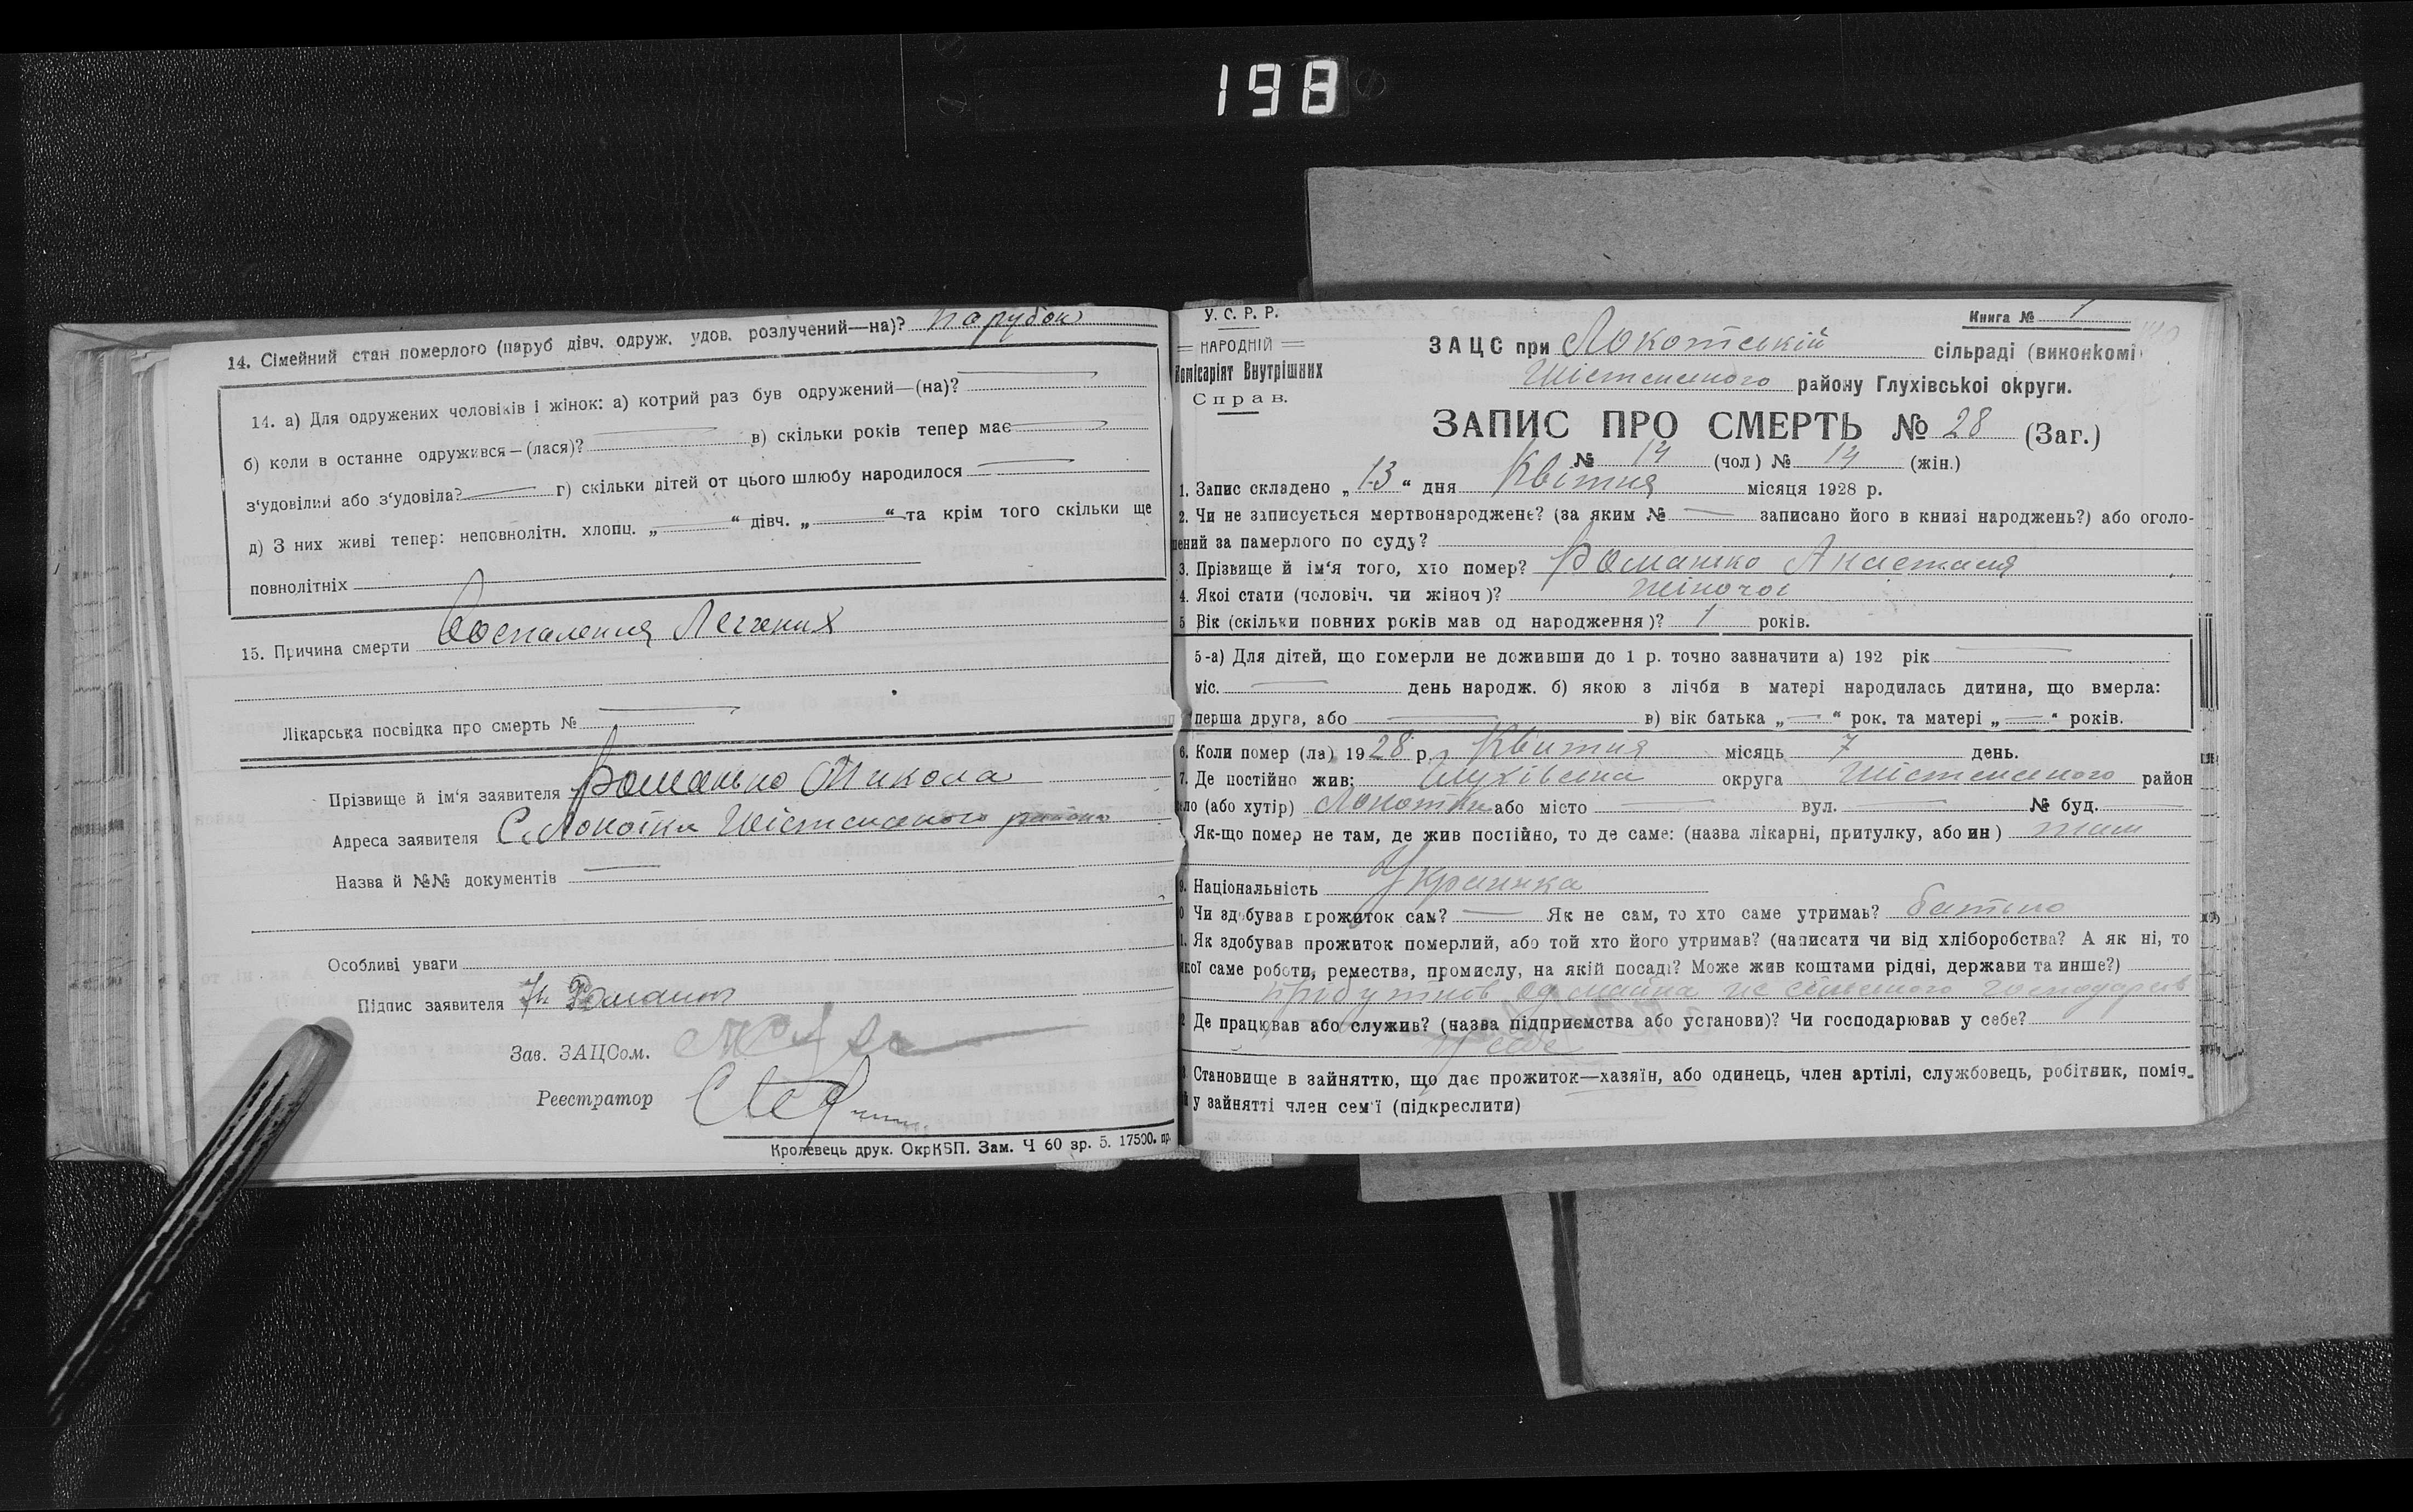 198
14. Сімейний стан померлого (паруб дівч. одруж. удов. розлучений—на)? Парубок
14. а) Для одружених чоловіків і жінок: а) котрий раз був одружений—(на)?
б) коли в останне одружився—(лася)? в) скільки років тепер має
з'удовілий або з'удовіла? г) скільки дітей от цього шлюбу народилося
д) З них живі тепер: неповнолітн. хлопц. „ — “ дівч. „ — “ та крім того скільки ще
повнолітніх
15. Причина смерти Воспаления Легких
Лікарська посвідка про смерть №
Прізвище й ім'я заявителя Романько Микола
Адреса заявителя С. Локотки Шістенського району
Назва й №№ документів
Особливі уваги
Підпис заявителя Романько
Зав. ЗАЦСом.
Реєстратор
Кролевець друк. ОкрКБП. Зам. Ч 60 зр. 5. 17500. пр.
У. С. Р. Р.
НАРОДНІЙ
Комісаріят Внутрішних
Справ.
Книга № 1
ЗАЦС при Локотській сільраді (виконкомі
Шістенського району Глухівської округи.
ЗАПИС ПРО СМЕРТЬ № 28 (Заг.)
№ 14 (чол) № 14 (жін.)
1. Запис складено „13“ дня Квітня місяця 1928 р.
2. Чи не записується мертвонароджене? (за яким № — записано його в книзі народжень?) або оголо-
шений за памерлого по суду?
3. Прізвище й ім'я того, хто помер? Романько Анастасия
4. Якої стати (чоловіч. чи жіноч)? жіночої
5 Вік (скільки повних років мав од народження)? 1 років.
5-а) Для дітей, що померли не доживши до 1 р. точно зазначити а) 192 рік
міс. — день народж. б) якою з лічби в матері народилась дитина, що вмерла:
перша друга, або — в) вік батька „—“ рок. та матері „—“ років.
6. Коли помер (ла) 1928 р. Квитня місяць 7 день.
7. Де постійно жив: Глухівська округа Шістенского район
ло (або хутір) Локотки або місто — вул. — № буд. —
Як-що помер не там, де жив постійно, то де саме: (назва лікарні, притулку, або ин) там
9. Національність Українка
0 Чи здобував прожиток сам? — Як не сам, то хто саме утримав? батько
1. Як здобував прожиток померлий, або той хто його утримав? (написати чи від хліборобства? А як ні, то
якої саме роботи, ремества, промислу, на якій посаді? Може жив коштами рідні, держави та инше?)
прибутков од майна не сільского господарств
2 Де працював або служив? (назва підприємства або установи)? Чи господарював у себе?
У себе
Становище в зайняттю, що дає прожиток—хазяїн, або одинець, член артілі, службовець, робітник, поміч-
й у зайнятті член сем'ї (підкреслити)